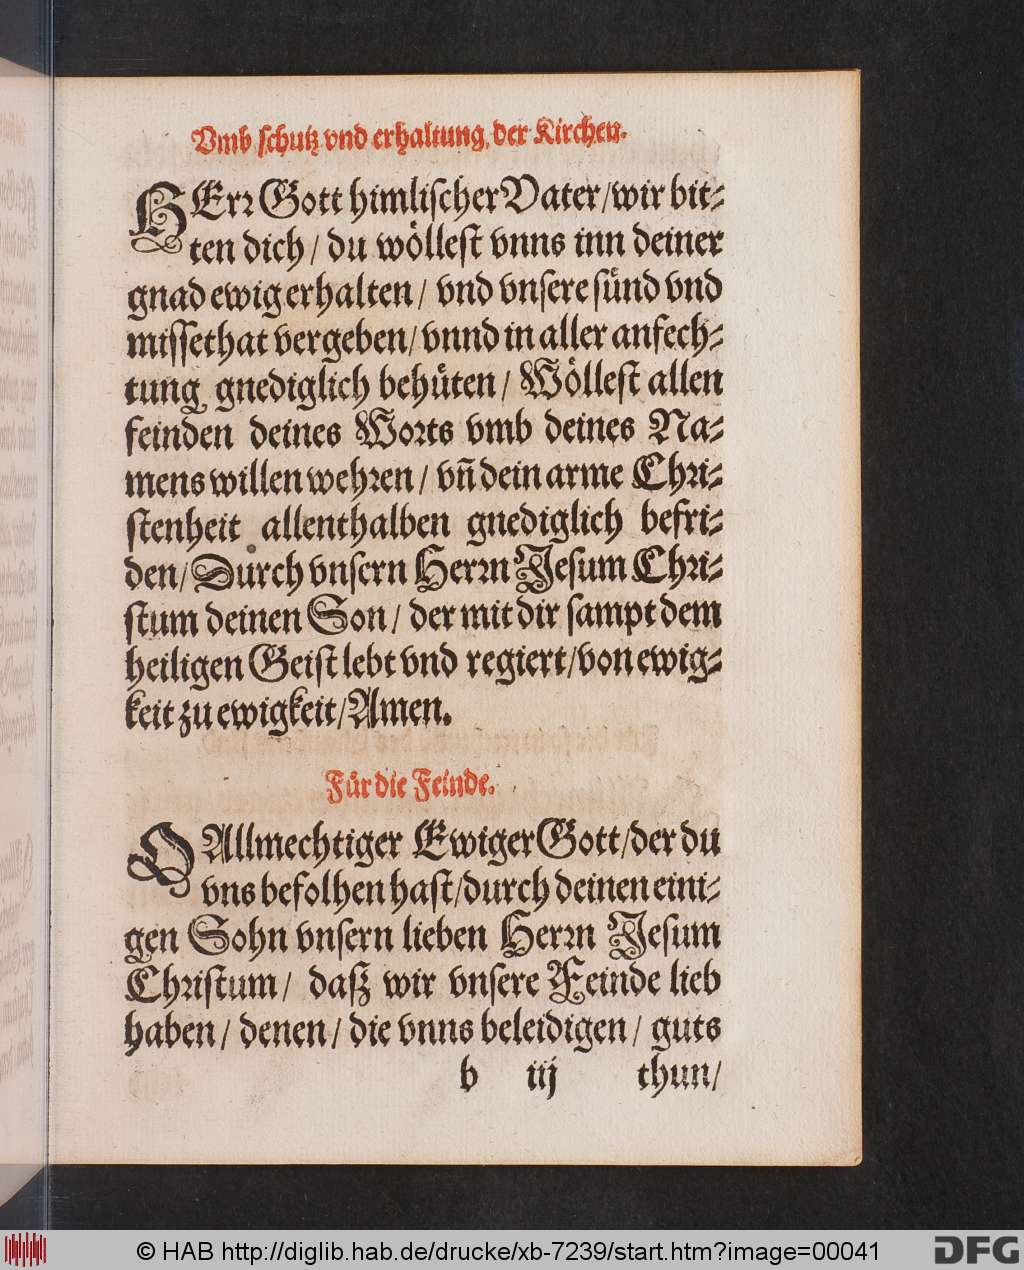 Vmb schutz vnd erhaltung, der Kirchen.
HErr Gott himlischer Vater/wir bit-
ten dich/ du wöllest vnns inn deiner
gnad ewig erhalten/ vnd vnsere sünd vnd
missethat vergeben/ vnnd in aller anfech-
tung gnediglich behüten/ Wöllest allen
feinden deines Worts vmb deines Na-
mens willen wehren/ vñ dein arme Chri-
stenheit allenthalben gnediglich befri-
den/ Durch vnsern Herrn Jesum Chri-
stum deinen Son/ der mit dir sampt dem
heiligen Geist lebt vnd regiert/von ewig-
keit zu ewigkeit/Amen.
Für die Feinde.
O Allmechtiger Ewiger Gott/der du
vns befolhen hast/durch deinen eini-
gen Sohn vnsern lieben Herrn Jesum
Christum/ daß wir vnsere Feinde lieb
haben/ denen/ die vnns beleidigen/ guts
b iij thun/
© HAB http://diglib.hab.de/drucke/xb-7239/start.htm?image=00041
DFG